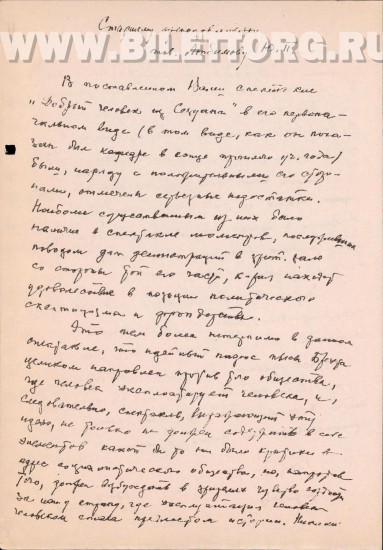 WWW.BILETTORG.RU
Старшему преподавателю
тов. Анисимову
В поставленном Вами спектакле
"Добрый человек из Сезуана" в его первона-
чальном виде (в том виде, как он пока-
зан был кафедре в конце прошлого уч. года)
были, наряду с положительными его сторо-
нами, отмечены серьезные недостатки.
Наиболее существенным из них было
наличие в спектакле моментов, послуживших
поводом для демонстраций в зрит. зале
со стороны той его части, которая находит
удовольствие в позиции политического
скептицизма и
Это тем более нетерпимо в данном
спектакле, что идейный пафос пьесы Брехта
целиком направлен против того общества,
где человек эксплоатирует человека, и,
следовательно, спектакль, выражающий эту
идею, не только не должен содержать в себе
элементов какой бы то ни было критики в
адрес социалистического общества, но, напротив
того, должен возбуждать в зрителях чувство гордости
за нашу страну, где эксплуатация человека
человеком стала предметом истории.
WWW.BILETTORG.RU